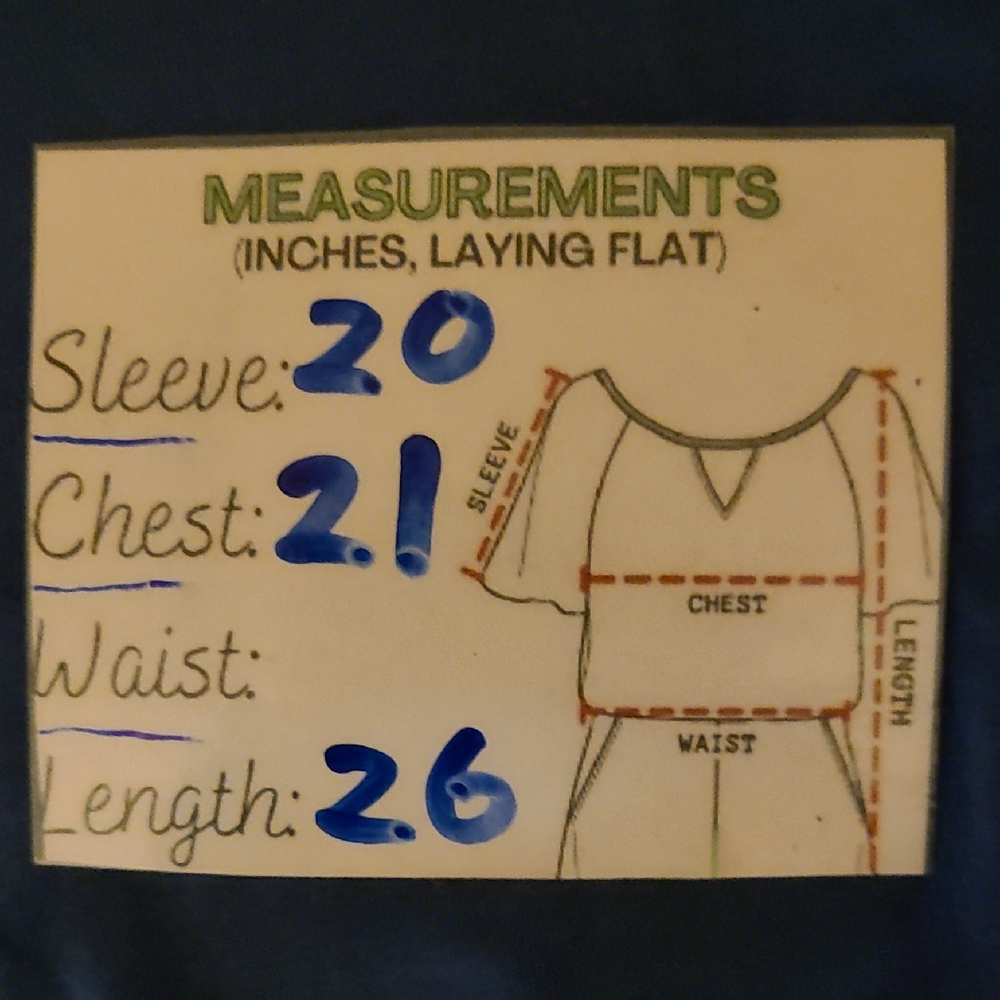 MEASUREMENTS
(INCHES, LAYING FLAT)
Sleeve: 20
Chest: 21
Waist:
Length: 26
SLEEVE
CHEST
WAIST
LENGTH